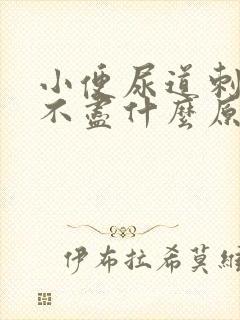 小便尿道刺
不盡什麼原
伊布拉希莫維